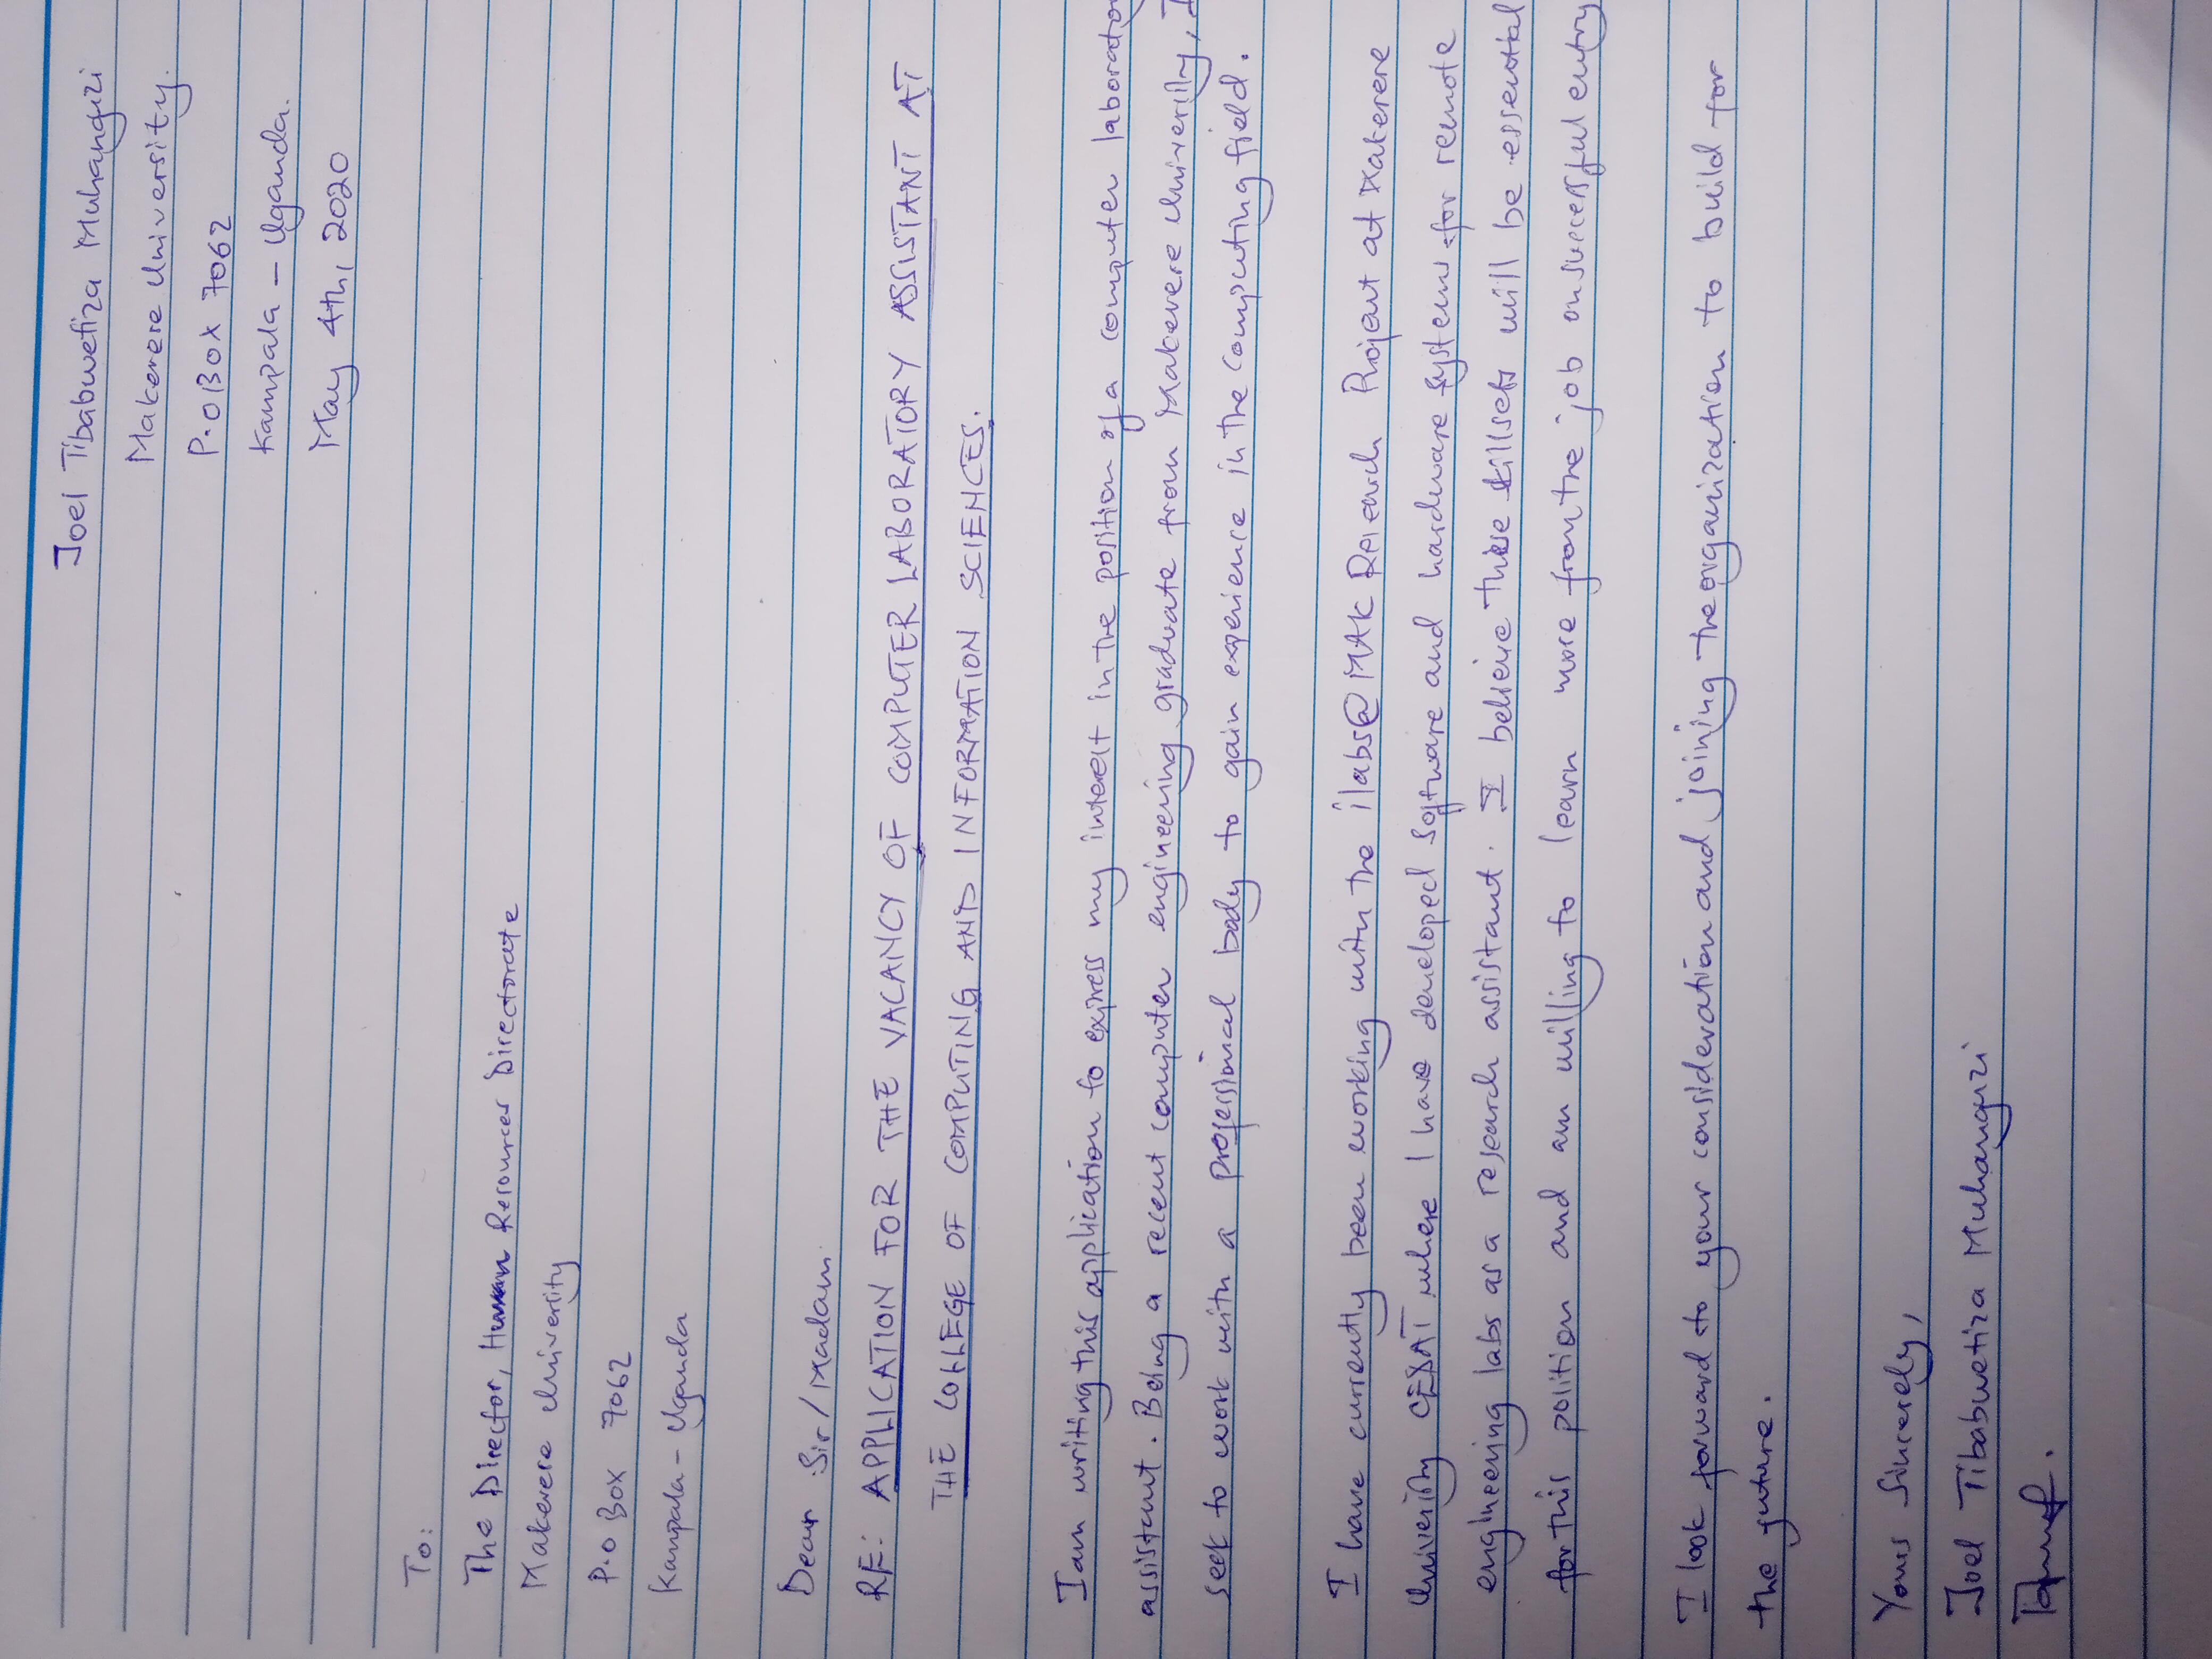 Joel Tibabwetiza Muhanguzi
Makerere University.
P.O BOX 7062
Kampala - Uganda.
May 4th, 2020
To:
The Director, Human Resources Directorate
Makerere University
P.O Box 7062
Kampala - Uganda
Dear Sir/Madam
RE: APPLICATION FOR THE VACANCY OF COMPUTER LABORATORY ASSISTANT AT
THE COLLEGE OF COMPUTING AND INFORMATION SCIENCES.
I am writing this application to express my interest in the position of a computer laborato
assistant. Being a recent computer engineering graduate from Makerere University, I
seek to work with a professional body to gain experience in the computing field.
I have currently been working with the ilabs@MAK Research Project at Makerere
University CEDAT where I have developed software and hardware systems for remote
engineering labs as a research assistant. I believe these skillsets will be essential
for this position and am willing to learn more from the job on successful entry
I look forward to your consideration and joining the organization to build for
the future.
Yours Sincerely,
Joel Tibabwetiza Muhanguzi